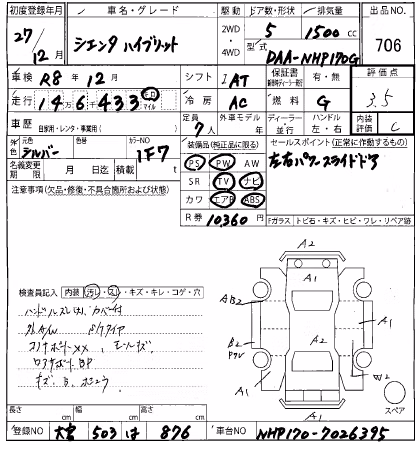 初度登録年月 車名・グレード 駆動 ドア数・形状 排気量 出品NO.
27/12月 シエンタ ハイブリット 2WD・4WD 5 1500cc 706
型式 DAA-NHP170G
車検 R8年12月 シフト IAT 保証書 有・無 評価点
走行 14万6千433 キロ マイル 冷房 AC 燃料 G 3.5
車歴 自家用・レンタ・事業用( ) 定員 7人 外車モデル 年 ディーラー・並行 ハンドル 左・右 内装評価 C
外色 元色 シルバー 色替 カラーNO 1F7 装備品(純正品に限る) セールスポイント(正常に作動するもの)
名義変更期限 月 日迄 積載 t PS PW AW 左右パワースライドドア
注意事項(欠品・修復・不具合箇所および状態) SR TV ナビ
カワ エアB ABS
R券 10,360円
Fガラス トビ石・キズ・ヒビ・ワレ・リペア跡
A2
A1
検査員記入 内装 汚レ・スレ・キズ・キレ・コゲ・穴
AB2
A1
B2
W2
スペア
A1
A2
長さ cm 幅 cm 高さ cm
登録NO 大宮 503 は 876 車台NO NHP170-7026395